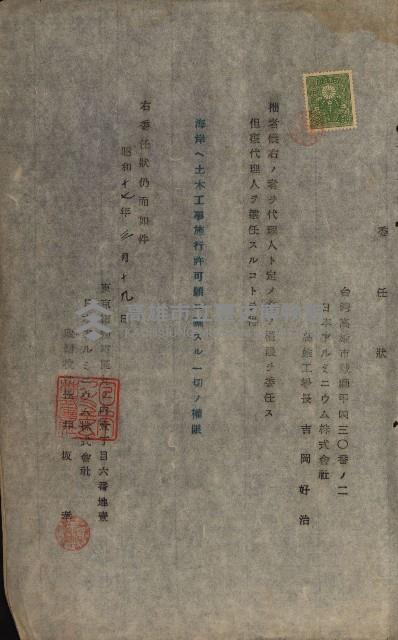 委任狀
台灣高雄市戲獅甲四三〇番ノ二
日本アルミニウム株式會社
高雄工場長 吉岡好治
拙者儀右ノ者ヲ代理人ト定メ左ノ權限ヲ委任ス
但復代理人ヲ選任スルコトヲ得
海岸ヘ土木工事施行許可願ニ關スル一切ノ權限
右委任狀仍而如件
昭和十七年三月十九日
丸ノ内壹丁目六番地壹
アルミニウム株式會社
高雄市立歷史博物館